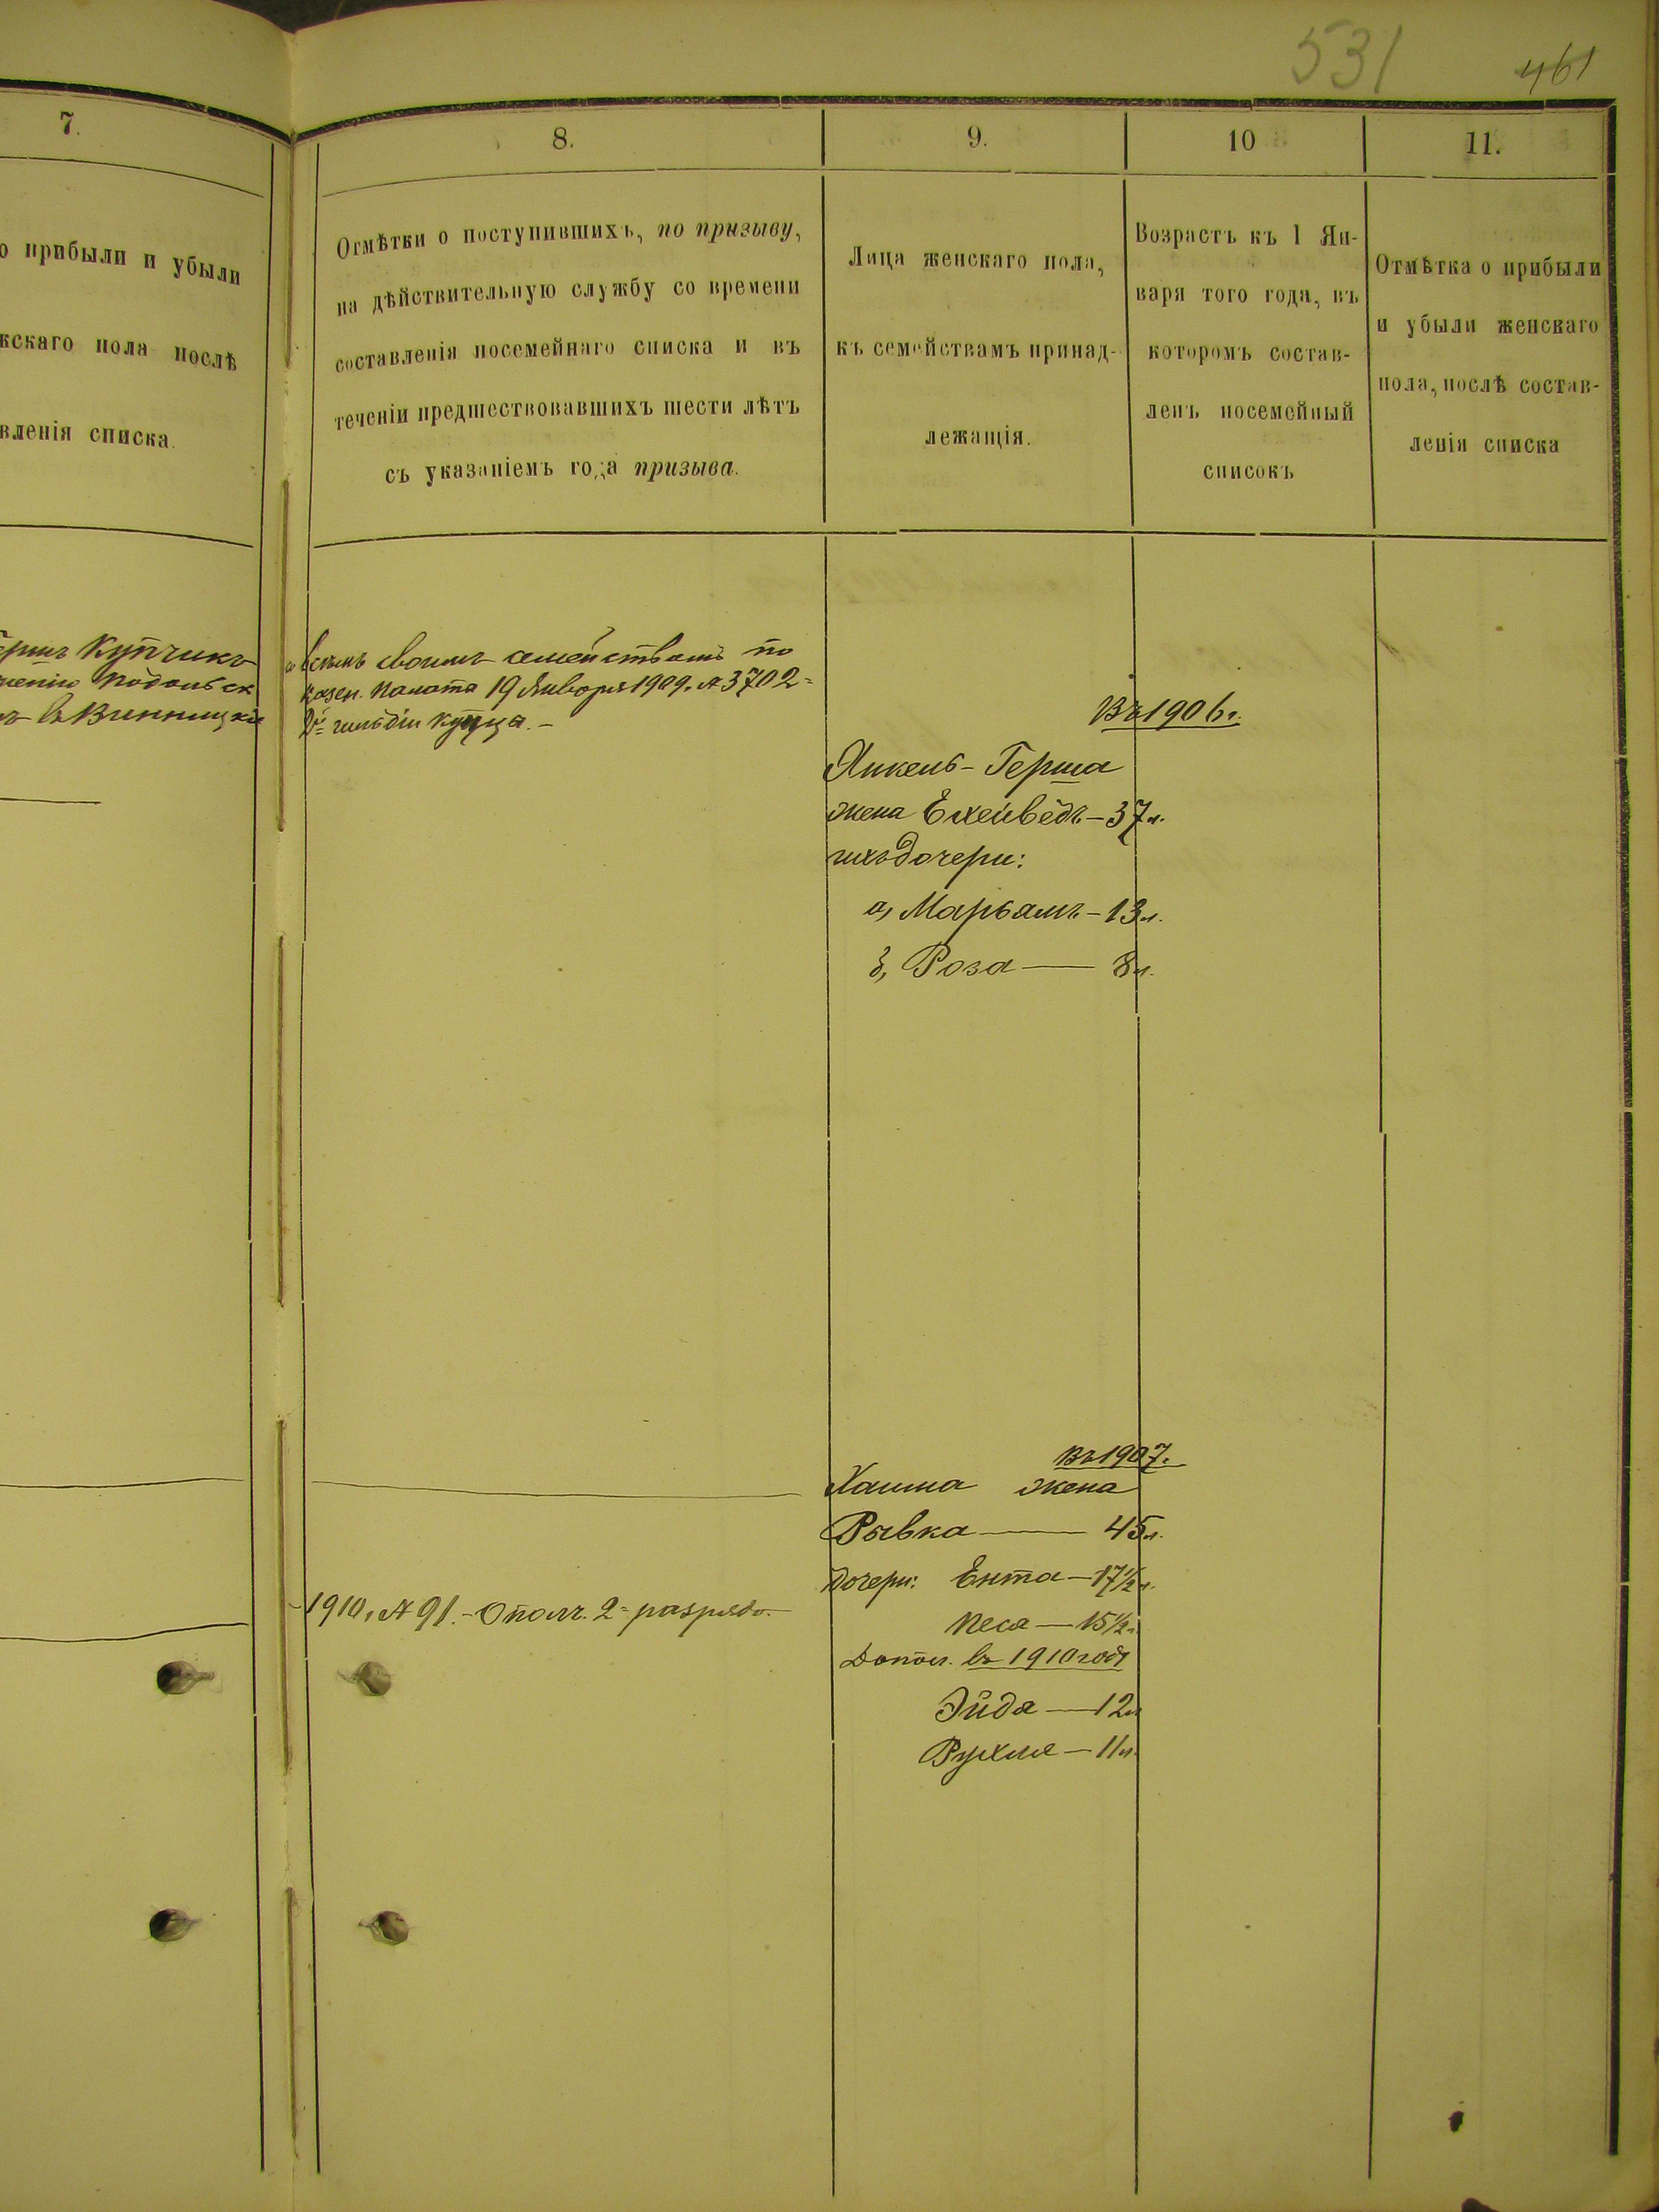 531
461
7.
8.
9.
10
11.
о прибыли и убыли
жскаго пола послѣ
вленія списка.
Отмѣтки о поступившихъ, по призыву,
на дѣйствительную службу со времени
составленія посемейнаго списка и въ
теченіи предшествовавшихъ шести лѣтъ
съ указаніемъ года призыва.
Лица женскаго пола,
къ семействамъ принад-
лежащія.
Возрастъ къ 1 Ян-
варя того года, въ
которомъ состав-
ленъ посемейный
списокъ
Отмѣтка о прибыли
и убыли женскаго
пола, послѣ состав-
ленія списка
Купчикъ
Подольск
въ Винницкіе
всѣмъ своимъ семействомъ по
казен. Палата 19 Января 1909. № 3702
2й гильдіи купца.-
Въ 1906 г.
Янкель-Герша
жена Ехейведъ-37 л.
ихъ дочери:
а, Марьямъ-13 л.
б, Роза — 8 л.
Въ 1907.
Хаима жена
Рывка — 45 л.
дочери: Ента-17½ л.
Песа — 15½ л.
Допол. въ 1910 году
Эйдя — 12 л
Рухля — 11 л.
1910, № 91.-Ополч. 2= разряда.